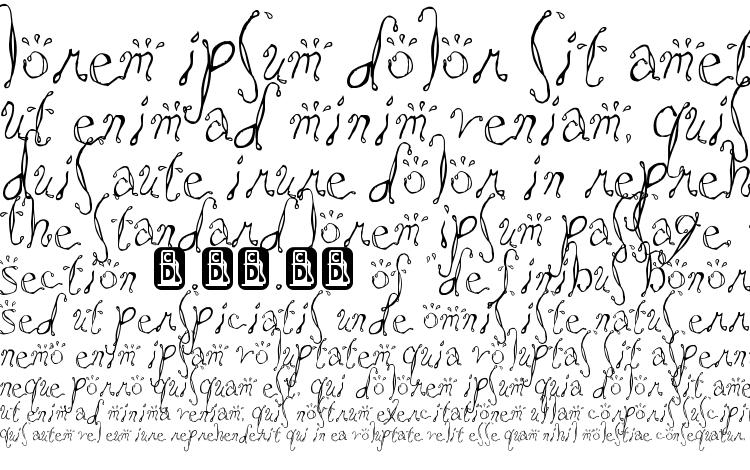 lorem ipsum dolor sit amet
ut enim ad minim veniam, quis
duis aute irure dolor in repreh
the standard lorem ipsum passage
section . . of "definibus bonor
sed ut perspiciatis unde omnis iste natus err
nemo enim ipsam voluptatem quia voluptas sit aspern
neque porro quisquam est, qui dolorem ipsum quia dolor sit ame
ut enim ad minima veniam, quis nostrum exercitationem ullam corporis suscipit
quis autem vel eum iure reprehenderit qui in ea voluptate velit esse quam nihil molestiae consequatur,